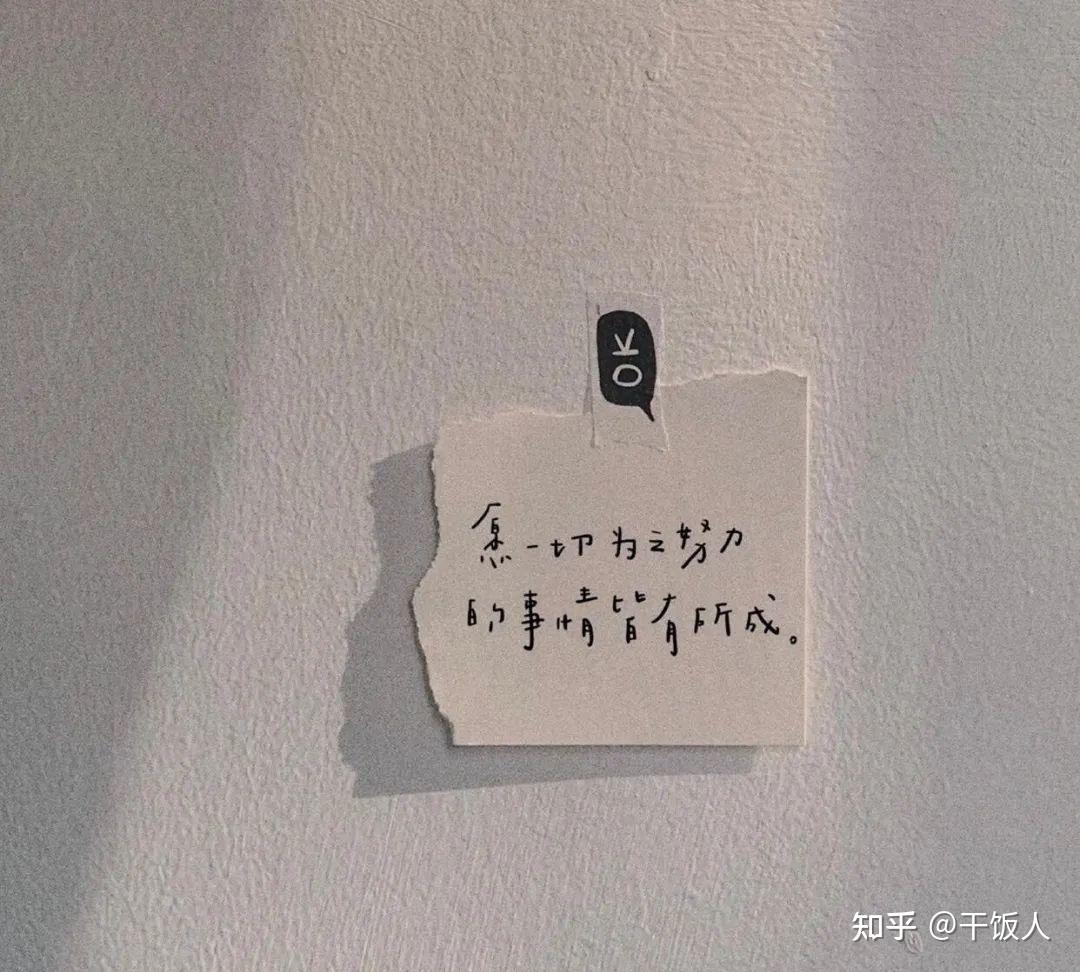 OK
愿一切为之努力
的事情皆有所成。
知乎 @干饭人